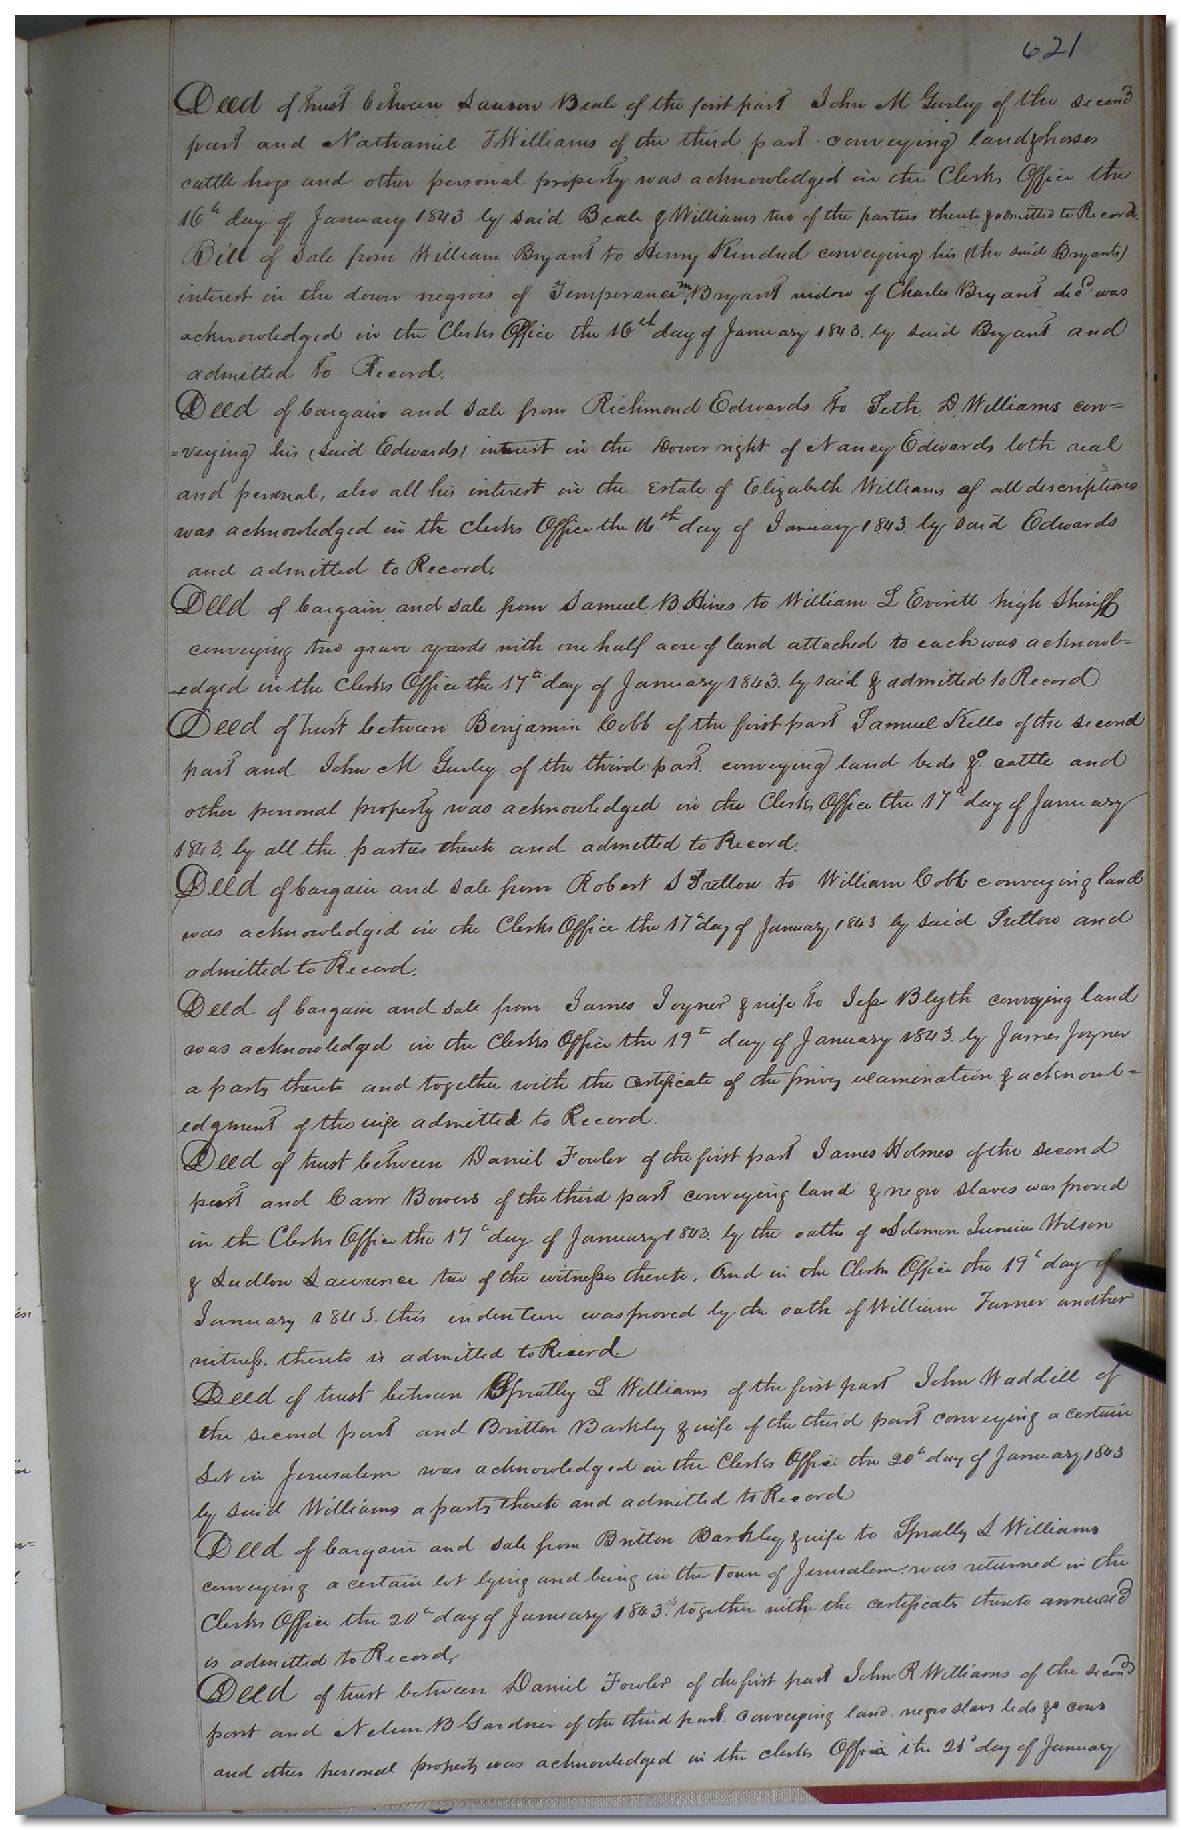 621
Deed of trust between Lawson Beale of the first part John M Gurley of the second
part and Nathaniel T Williams of the third part conveying land & horses
cattle hogs and other personal property was acknowledged in the Clerks Office the
16th day of January 1843 by said Beale & Williams two of the parties thereto & admitted to Record.
Bill of Sale from William Bryant to Henry Kindred conveying his (the said Bryants)
interest in the dower negroes of Temperance Bryant widow of Charles Bryant decd was
acknowledged in the Clerks Office the 16th day of January 1843. by said Bryant and
admitted to Record.
Deed of bargain and sale from Richmond Edwards to Seth D. Williams con=
=veying his (said Edwards) interest in the Dower right of Nancy Edwards both real
and personal, also all his interest in the Estate of Elizabeth Williams of all descriptions
was acknowledged in the Clerks Office the 16th day of January 1843. by said Edwards
and admitted to Record.
Deed of bargain and sale from Samuel B Hines to William L Everett high Sheriff
conveying two grave yards with one half acre of land attached to each was acknowl=
-edged in the Clerks Office the 17th day of January 1843. by said & admitted to Record
Deed of trust between Benjamin Cobb of the first part Samuel Kello of the second
part and John M Gurley of the third part. conveying land beds &c. cattle and
other personal property was acknowledged in the Clerks Office the 17th day of January
1843. by all the parties thereto and admitted to Record.
Deed of bargain and sale from Robert S Pretlow to William Cobb conveying land
was acknowledged in the Clerks Office the 17th day of January 1843 by said Pretlow and
admitted to Record.
Deed of bargain and sale from James Joyner & wife to Jesse Blyth conveying land
was acknowledged in the Clerks Office the 19th day of January 1843. by James Joyner
a party thereto and together with the certificate of the privy examination & acknowl=
edgment of the wife admitted to Record.
Deed of trust between Daniel Fowler of the first part James Holmes of the second
part and Carr Bowers of the third part conveying land & negro slaves was proved
in the Clerks Office the 17th day of January 1843. by the oaths of Solomon Wilson
& Ludlow Lawrence two of the witnesses thereto. And in the Clerks Office the 19th day of
January 1843. this indenture was proved by the oath of William Turner another
witness. thereto is admitted to Record
Deed of trust between Spratley L Williams of the first part John Waddill of
the second part and Britton Barkley & wife of the third part conveying a certain
Lot in Jerusalem was acknowledged in the Clerks Office the 20th day of January 1843
by said Williams a party thereto and admitted to Record
Deed of bargain and sale from Britton Barkley & wife to Spratly L Williams
conveying a certain lot lying and being in the Town of Jerusalem was returned in the
Clerks Office the 20th day of January 1843. together with the certificate thereto annexed
is admitted to Record.
Deed of trust between Daniel Fowler of the first part John R Williams of the second
part and Nelson B Gardner of the third part. conveying land. negro slaves beds &c cows
and other personal property was acknowledged in the clerks Office the 21st day of January